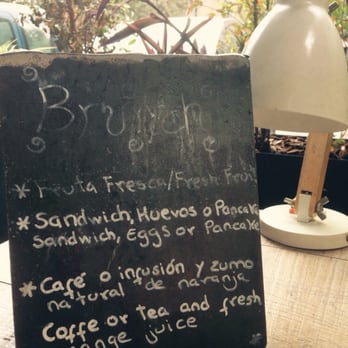 Brunch
* Fruta Fresca/Fresh Fruit
* Sandwich, Huevos o Pancake
Sandwich, Eggs or Pancake
* Café o infusión y zumo
natural de naranja
Coffe or tea and fresh
ange juice